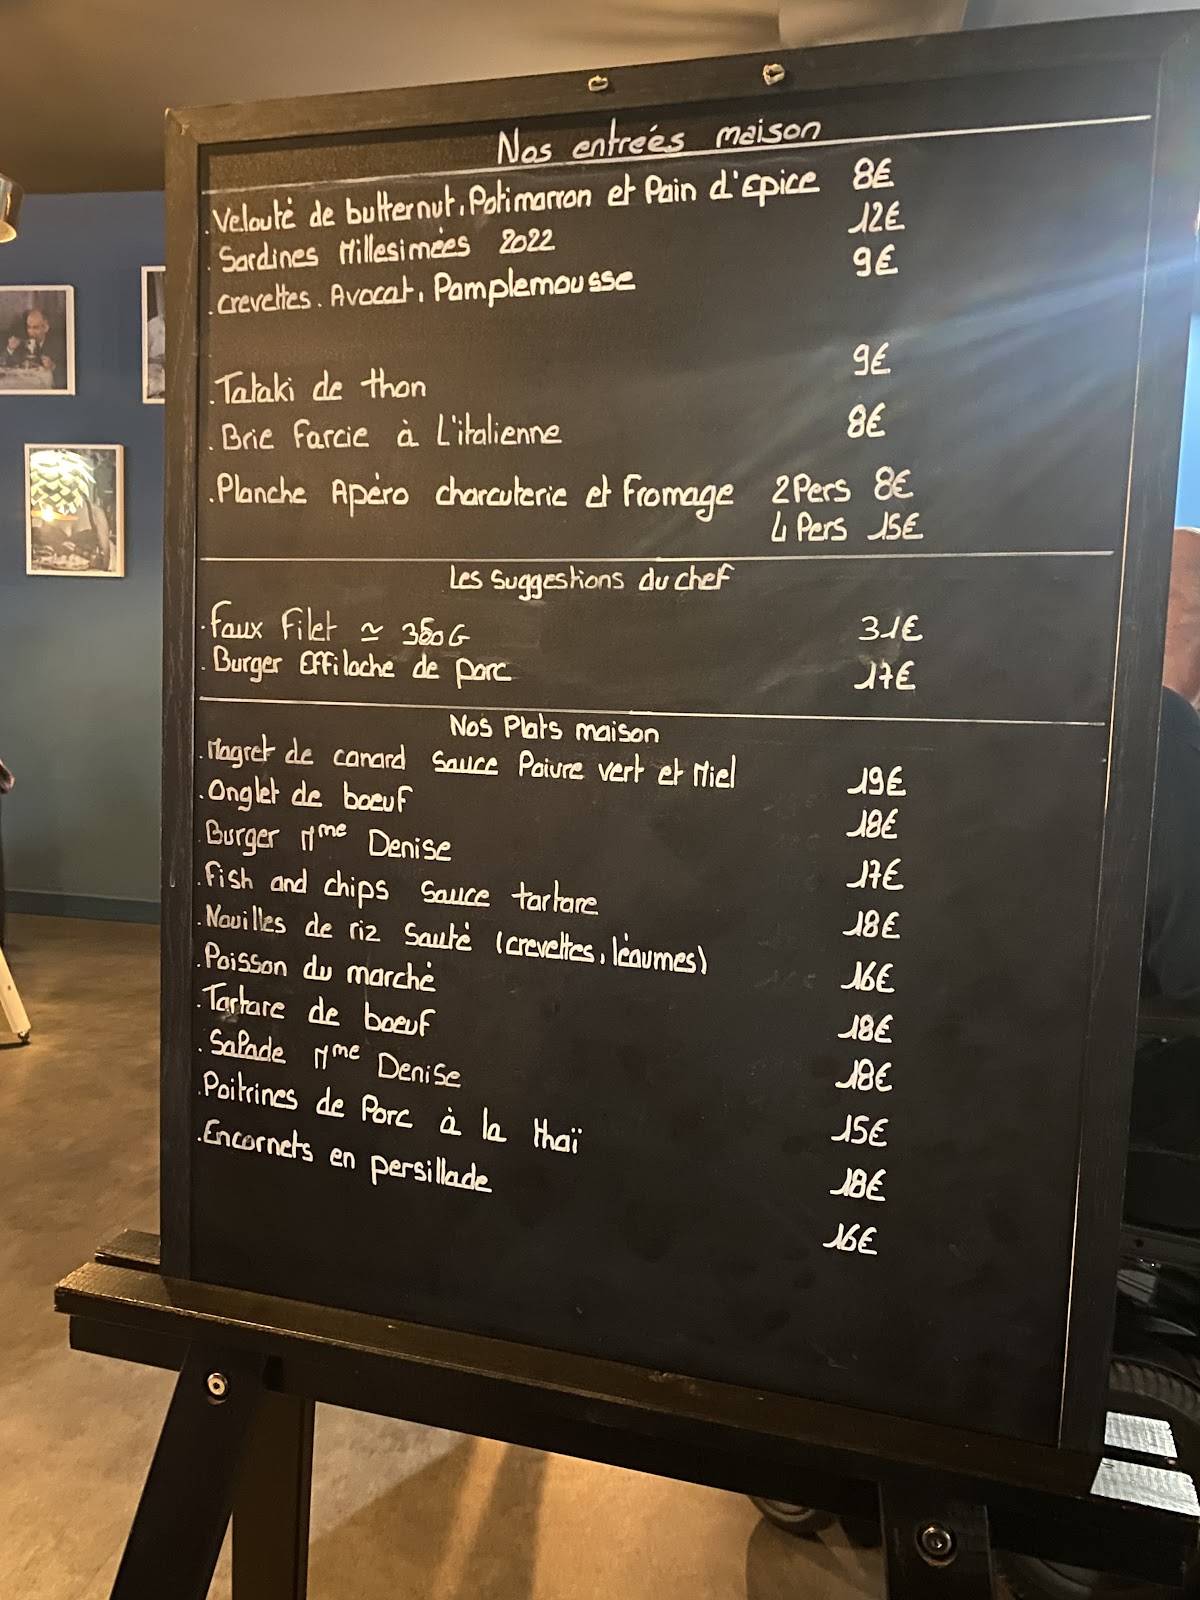 Nos entreés maison
.Velouté de butternut, Potimarron et Pain d'Epice 8€
.Sardines Millesimées 2022 12€
.crevettes. Avocat, Pamplemousse 9€
.Tataki de thon 9€
.Brie Farcie à L'italienne 8€
.Planche Apéro charcuterie et Fromage 2Pers 8€
4 Pers 15€
Les Suggestions du chef
.Faux Filet ≃ 350G 31€
.Burger Effiloche de porc 17€
Nos Plats maison
.Magret de canard Sauce Poivre vert et Miel 19€
.Onglet de boeuf 18€
.Burger Mme Denise 17€
.Fish and chips Sauce tartare 18€
.Nouilles de riz Sauté (crevettes, léaumes) 16€
.Poisson du marché 18€
.Tartare de boeuf 18€
.Salade Mme Denise 15€
.Poitrines de Porc à la thaï 18€
.Encornets en persillade 16€